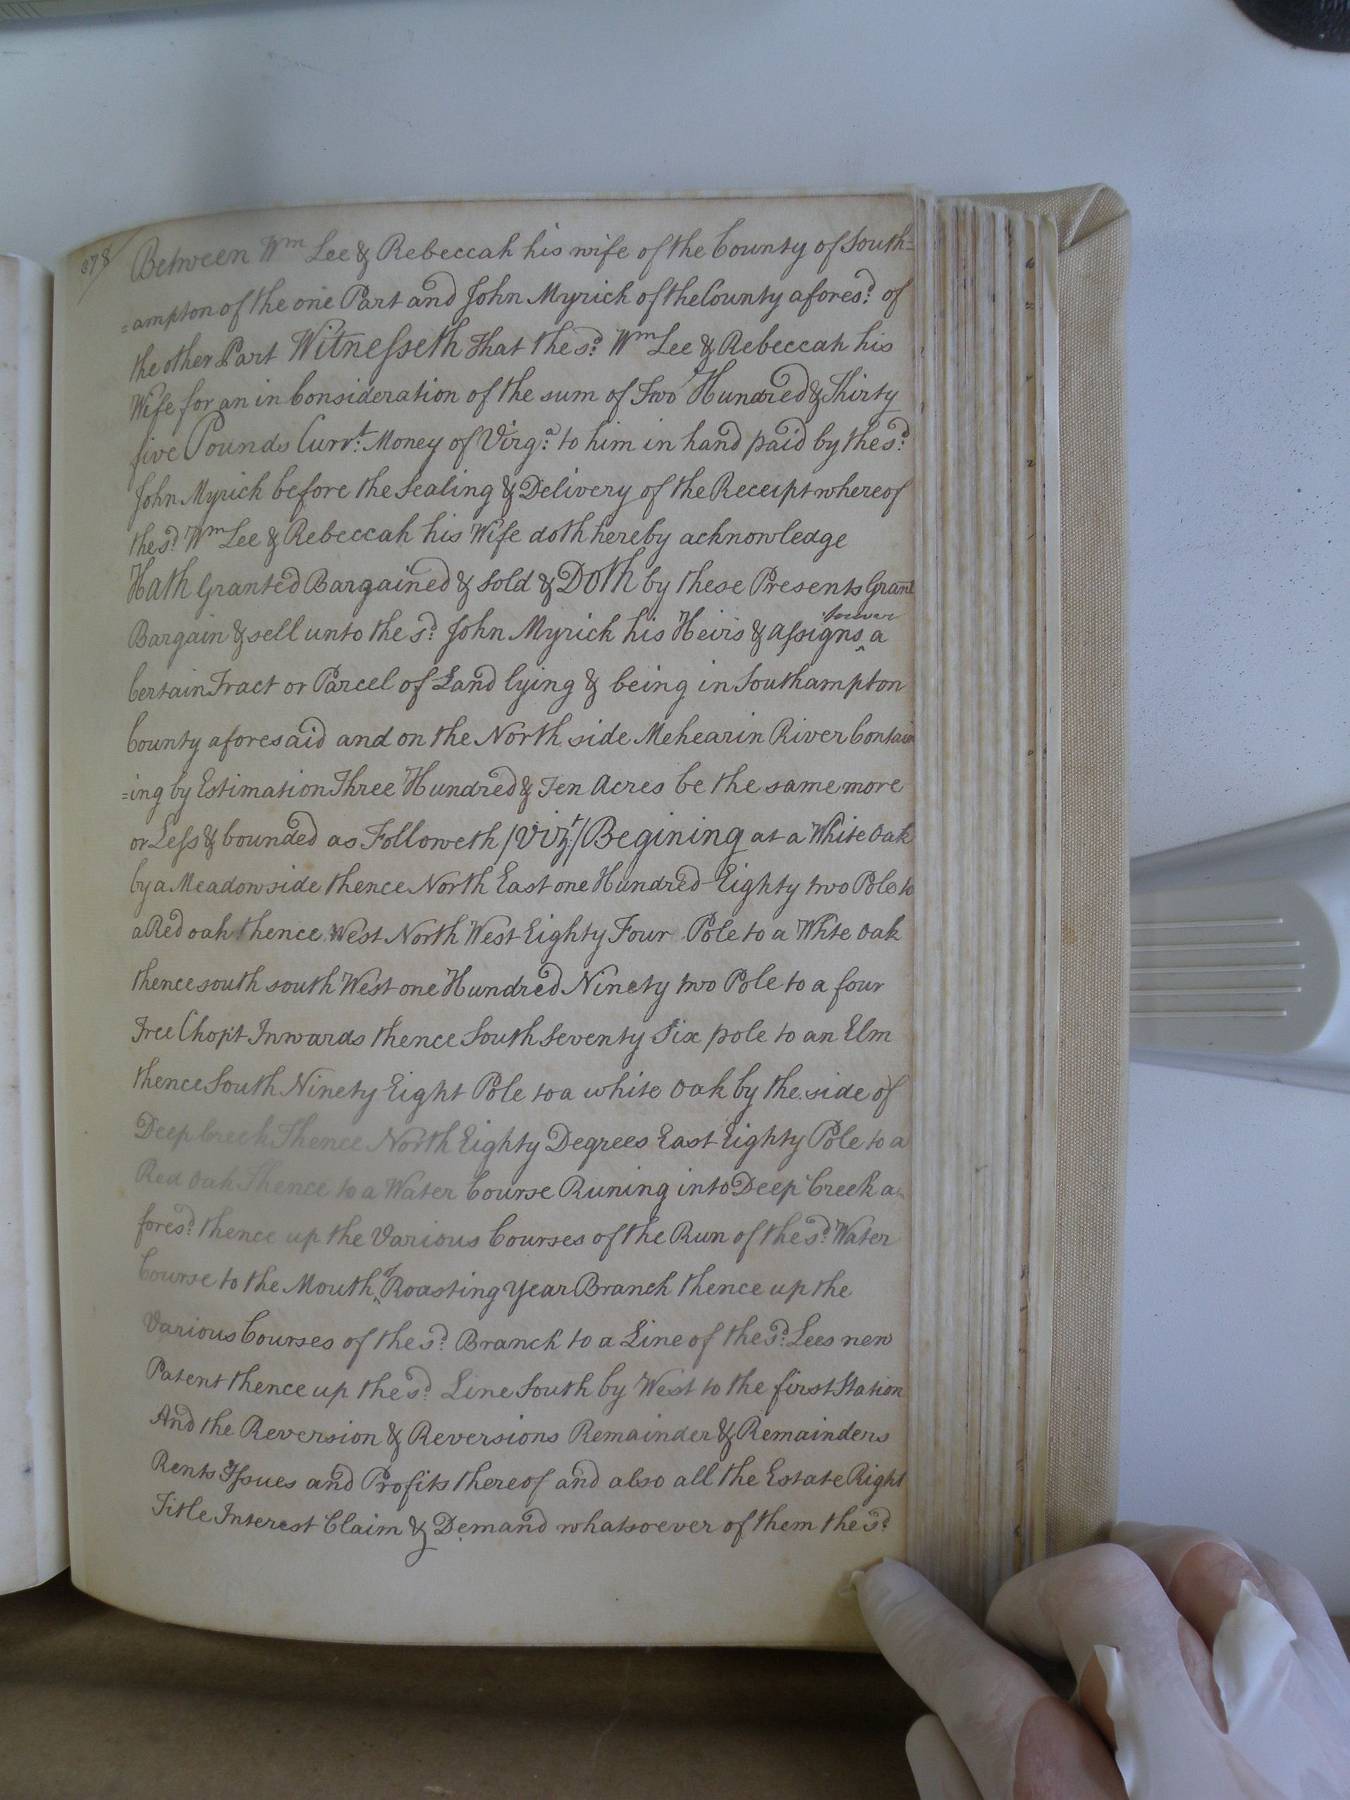 378
Between Wm Lee & Rebeccah his wife of the County of South=
=ampton of the one Part and John Myrick of the County afores.d of
the other Part Witnesseth That the s.d Wm Lee & Rebeccah his
Wife for an in Consideration of the sum of Two Hundred & Thirty
five Pounds Curr.t Money of Virg.a to him in hand paid by the s.d
John Myrick before the Sealing & Delivery of the Receipt whereof
the s.d Wm Lee & Rebeccah his Wife doth hereby acknowledge
Hath Granted Bargained & Sold & Doth by these Presents Grant
forever
Bargain & sell unto the s.d John Myrick his Heirs & Assigns ^ a
Certain Tract or Parcel of Land lying & being in Southampton
County aforesaid and on the North side Mehearin River Contain
=ing by Estimation Three Hundred & Ten Acres be the same more
or Less & bounded as Followeth /Vizt/ Begining at a White Oak
by a Meadow side thence North East one Hundred Eighty two Pole to
a Red oak thence West North West Eighty Four Pole to a White Oak
thence south south West one Hundred Ninety two Pole to a four
Tree Chop't Inwards thence South Seventy Six pole to an Elm
thence South Ninety Eight Pole to a white Oak by the side of
Deep Creek Thence North Eighty Degrees East Eighty Pole to a
Red Oak Thence to a Water Course Runing into Deep Creek a=
fores.d thence up the Various Courses of the Run of the s.d Water
Course to the Mouth ^of Roasting Year Branch thence up the
Various Courses of the s.d Branch to a Line of the s.d Lees new
Patent thence up the s.d Line South by West to the first Station
And the Reversion & Reversions Remainder & Remainders
Rents Issues and Profits thereof and also all the Estate Right
Title Interest Claim & Demand whatsoever of them the s.d